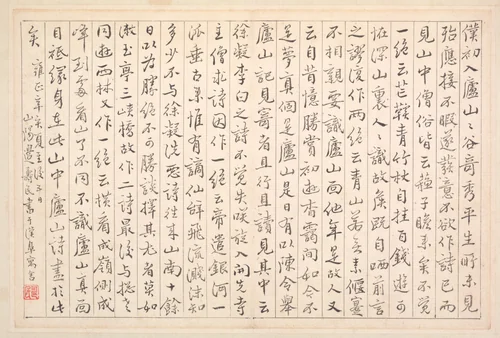 僕初入廬山々谷奇秀平生所未見
殆應接不暇遂發意不欲作詩已而
見山中僧俗皆云蘇子瞻來矣不覺
一絕云芒鞵青竹杖自拄百錢遊可
怪深山裏人人識故侯既自哂前言
之謬復作兩絕云青山若無素偃蹇
不相親要識廬山面他年是故人又
云自昔憶勝賞初遊杳靄間如今不
是夢真個是廬山是日有以陳令舉
廬山記見寄者且行且讀見其中云
徐凝李白之詩不覺失笑旋入開先寺
主僧求詩因作一絕云帝遣銀河一
派垂古來惟有謫仙辭飛流濺沫知
多少不與徐凝洗惡詩往來山南十餘
日以為勝絕不可勝談擇其尤者莫如
漱玉亭三峽橋故作二詩最後与摠老
同遊西林又作一絕云橫看成嶺側成
峰到處看山了不同不識廬山真面
目祇緣身在此山中廬山詩盡於此
矣
雍正辛亥夏五
山陽邊壽民書于